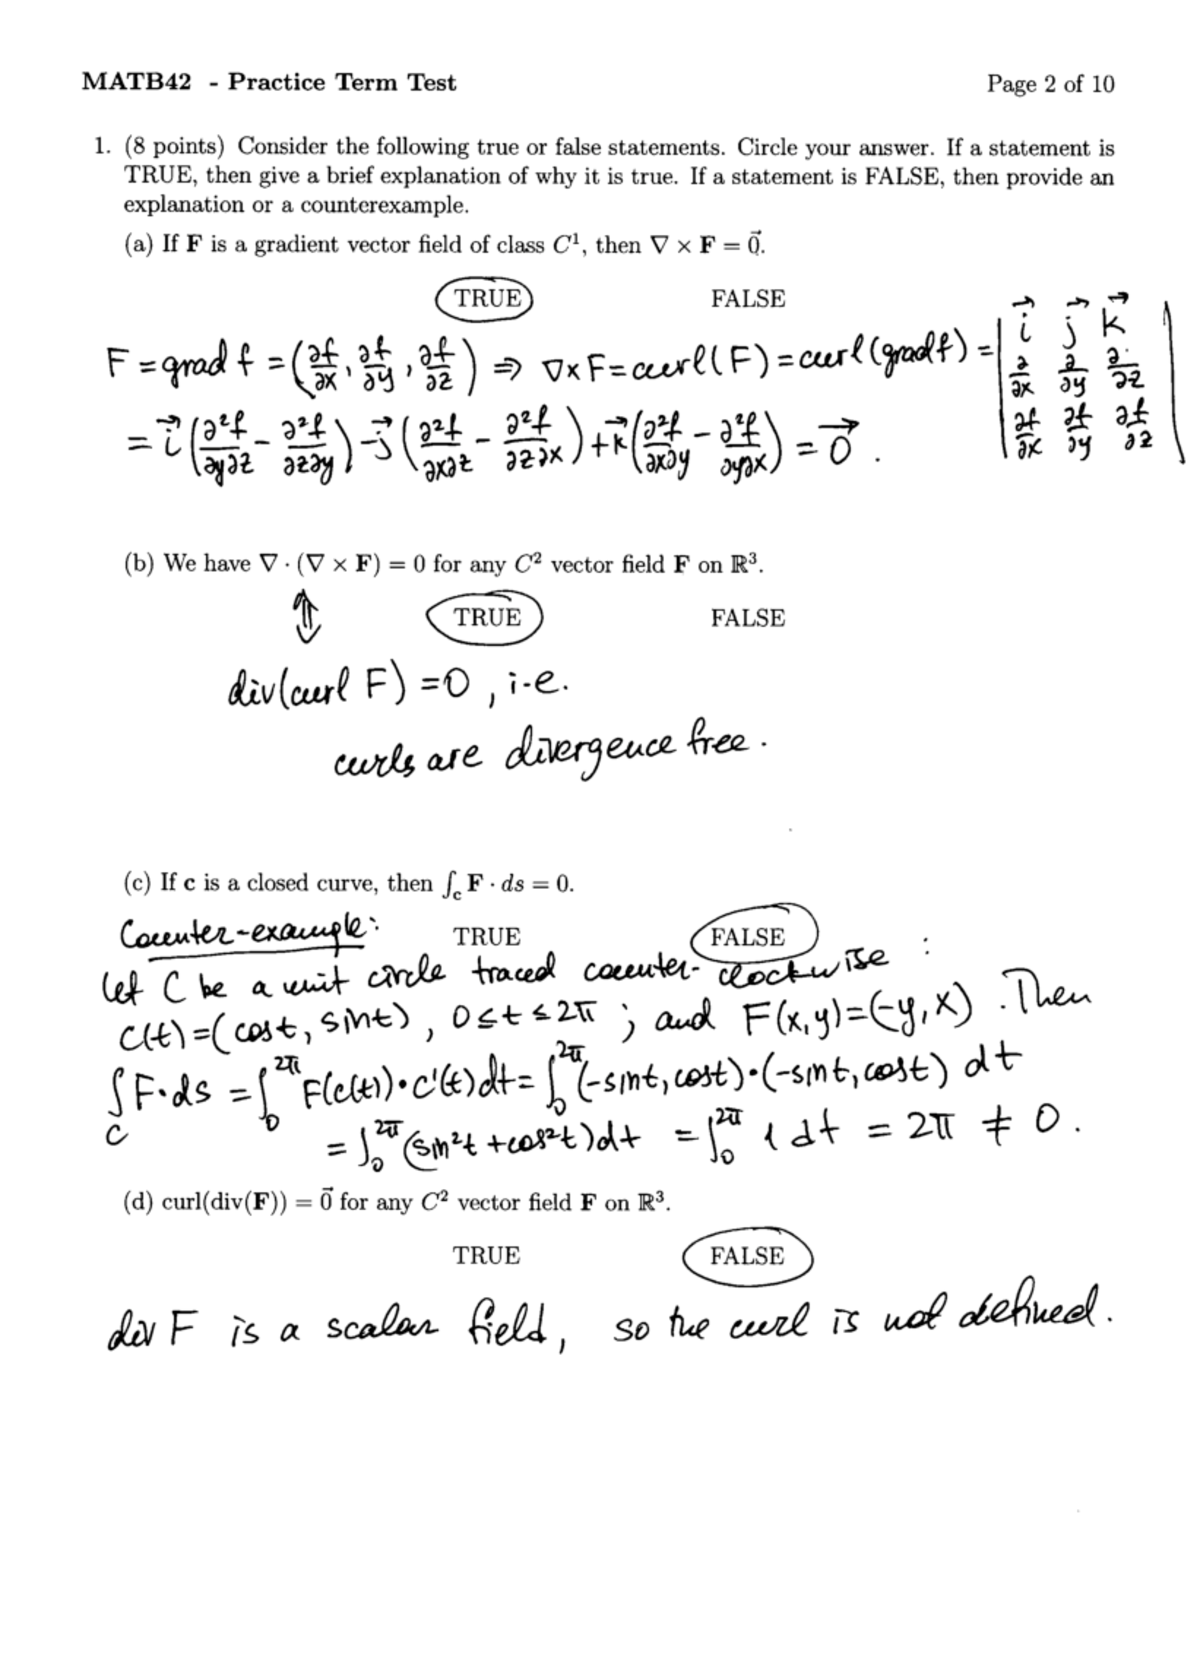 MATB42 - Practice Term Test Page 2 of 10
1. (8 points) Consider the following true or false statements. Circle your answer. If a statement is
TRUE, then give a brief explanation of why it is true. If a statement is FALSE, then provide an
explanation or a counterexample.
(a) If F is a gradient vector field of class C¹, then ∇ × F = 0⃗.
TRUE FALSE
F = grad f = (∂f/∂x, ∂f/∂y, ∂f/∂z) ⇒ ∇×F = curl(F) = curl(grad f) = | i⃗ j⃗ k⃗ ; ∂/∂x ∂/∂y ∂/∂z ; ∂f/∂x ∂f/∂y ∂f/∂z |
= i⃗ (∂²f/∂y∂z - ∂²f/∂z∂y) - j⃗ (∂²f/∂x∂z - ∂²f/∂z∂x) + k⃗ (∂²f/∂x∂y - ∂²f/∂y∂x) = 0⃗ .
(b) We have ∇ · (∇ × F) = 0 for any C² vector field F on ℝ³.
⇕ TRUE FALSE
div(curl F) = 0 , i.e.
curls are divergence free.
(c) If c is a closed curve, then ∫_c F · ds = 0.
Counter-example: TRUE FALSE
let C be a unit circle traced counter-clockwise :
C(t) = (cost, sint) , 0 ≤ t ≤ 2π ; and F(x,y) = (-y, x) . Then
∫_C F·ds = ∫₀^2π F(c(t))·c'(t)dt = ∫₀^2π (-sint, cost)·(-sint, cost) dt
= ∫₀^2π (sin²t + cos²t)dt = ∫₀^2π 1 dt = 2π ≠ 0 .
(d) curl(div(F)) = 0⃗ for any C² vector field F on ℝ³.
TRUE FALSE
div F is a scalar field, so the curl is not defined.